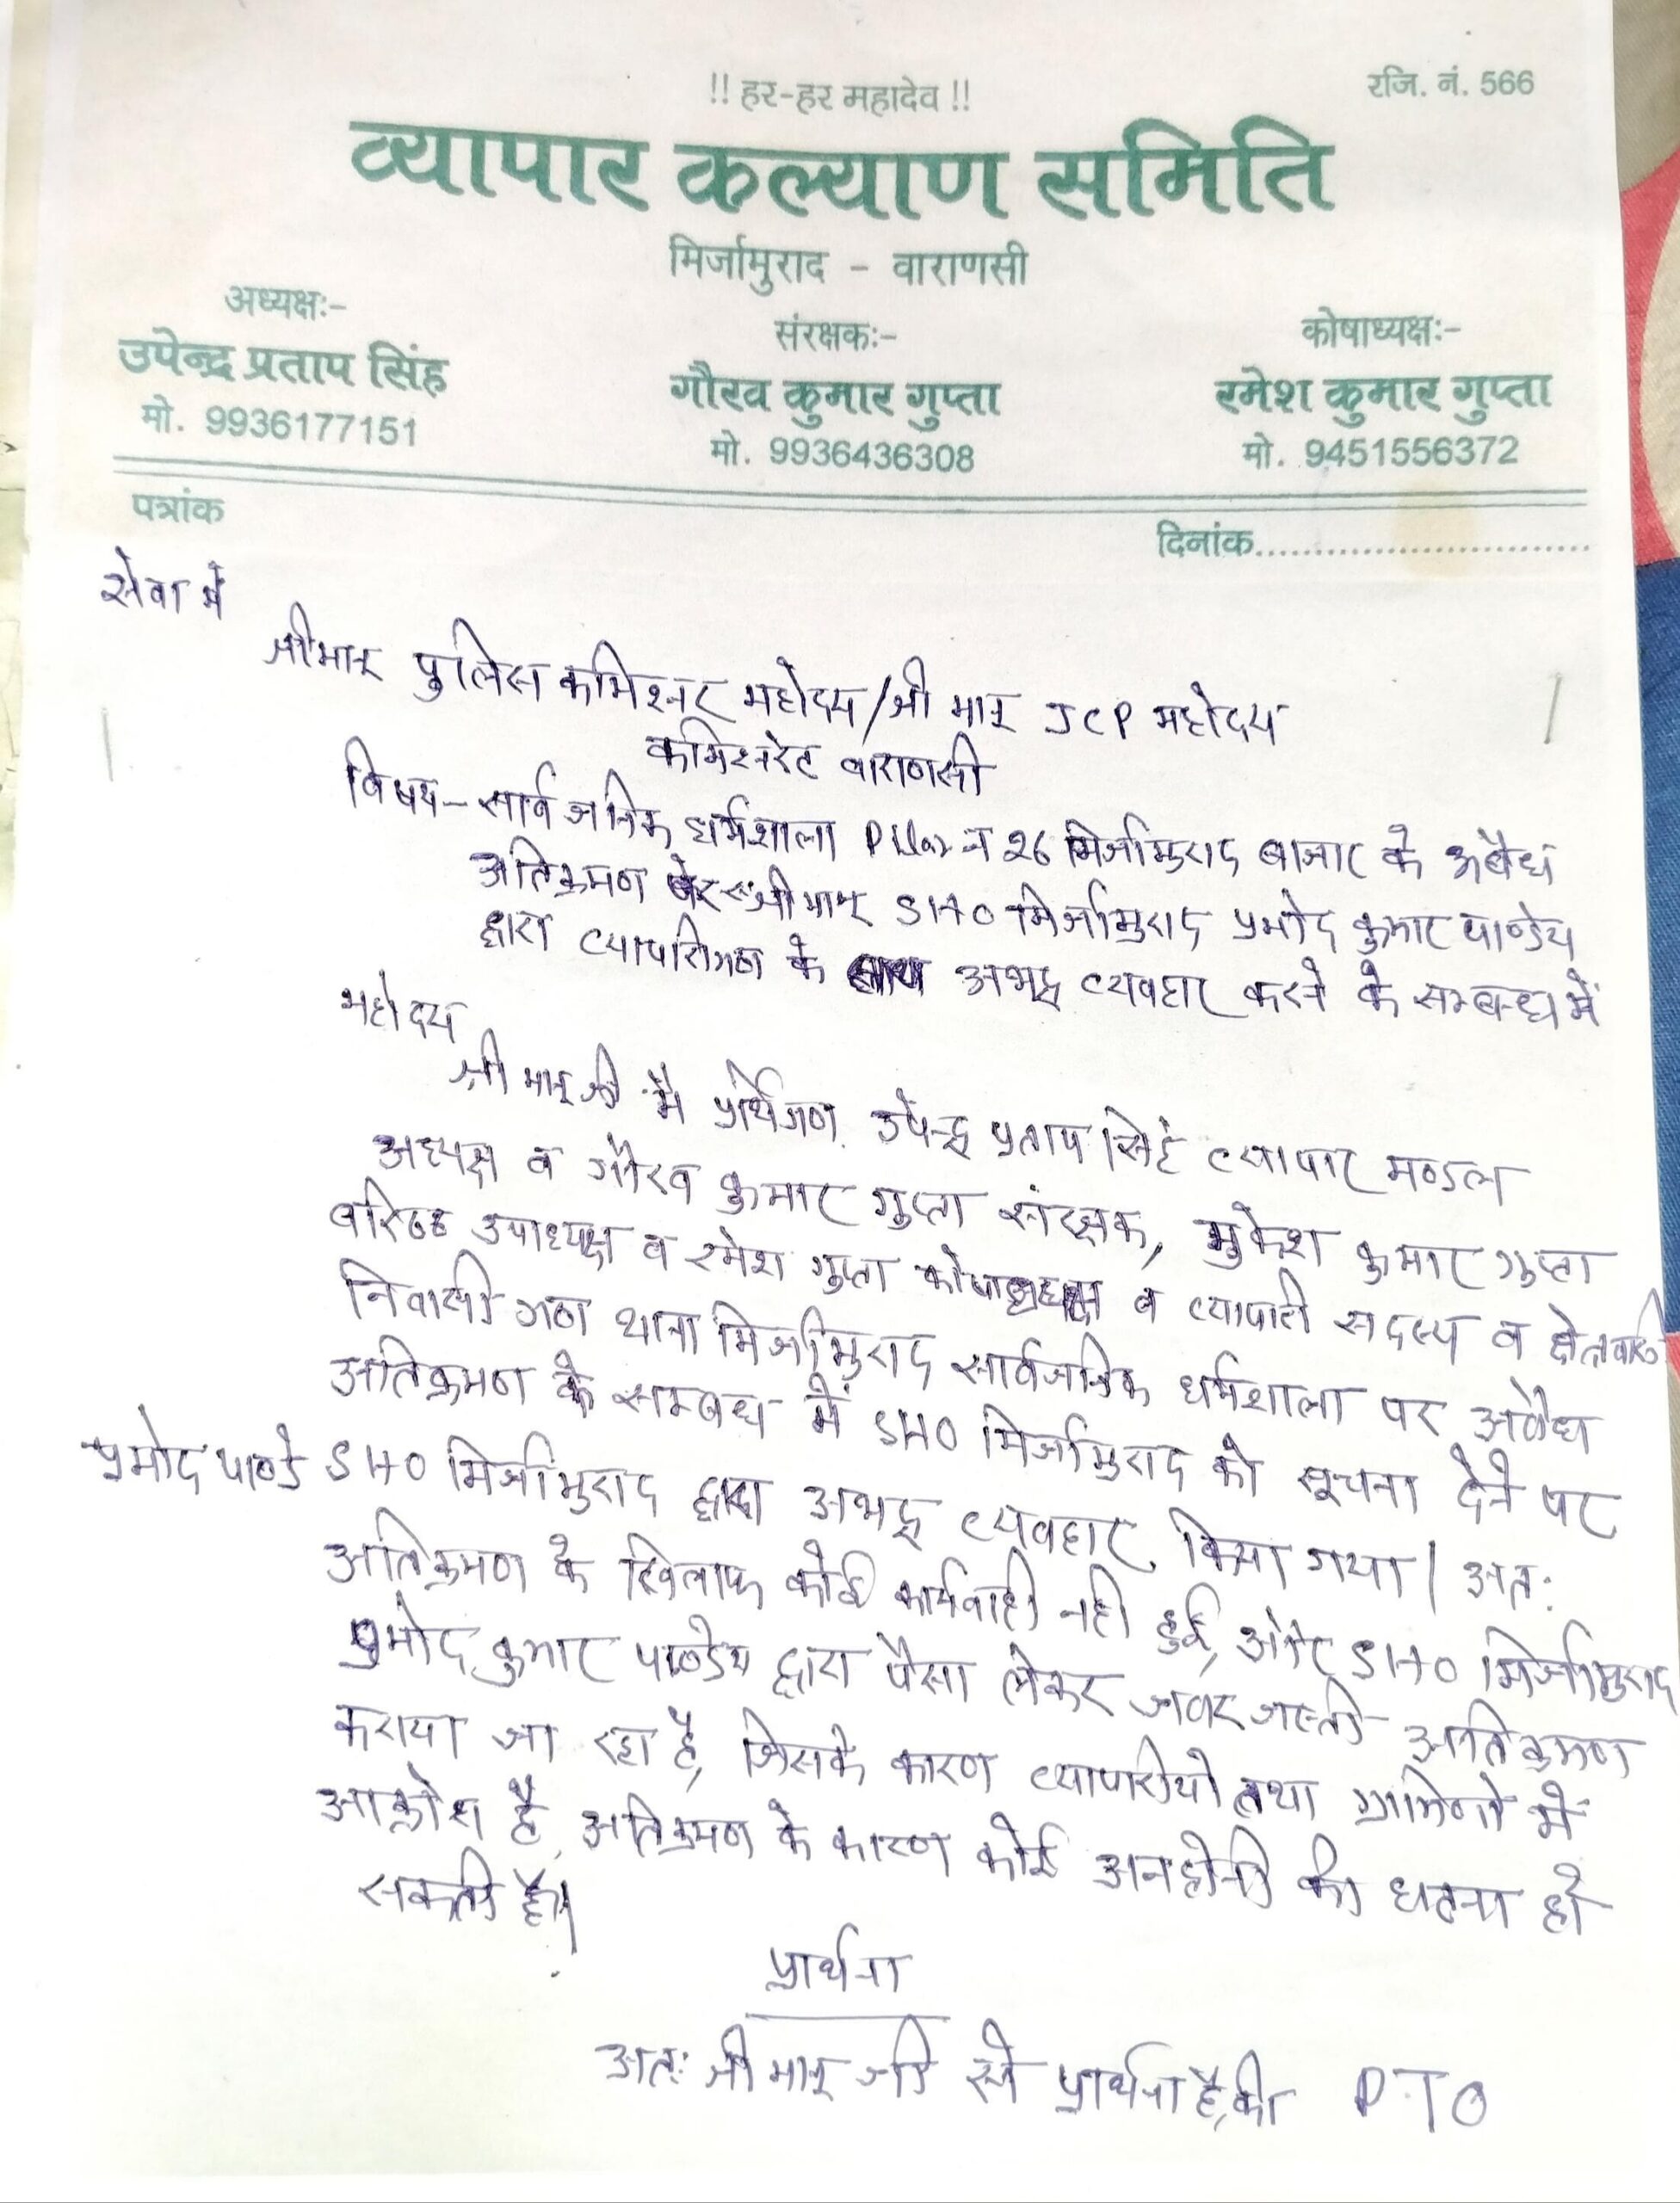 !! हर-हर महादेव !!
रजि. नं. 566
व्यापार कल्याण समिति
मिर्जामुराद - वाराणसी
अध्यक्षः-
उपेन्द्र प्रताप सिंह
मो. 9936177151
संरक्षकः-
गौरव कुमार गुप्ता
मो. 9936436308
कोषाध्यक्षः-
रमेश कुमार गुप्ता
मो. 9451556372
पत्रांक
दिनांक..............................
सेवा में
श्रीमान् पुलिस कमिश्नर महोदय/श्री मान् JCP महोदय
कमिश्नरेट वाराणसी
विषय- सार्वजनिक धर्मशाला Pillar न 26 मिर्जामुराद बाजार के अबैध
अतिक्रमण श्रीमान् SHO मिर्जामुराद प्रमोद कुमार पाण्डेय
द्वारा व्यापारीगण के साथ अभद्र व्यवहार करने के सम्बन्ध में
महोदय
श्री मान् जी मै प्रार्थीगण. उपेन्द्र प्रताप सिंह व्यापार मण्डल
अध्यक्ष व गौरव कुमार गुप्ता संरक्षक, मुकेश कुमार गुप्ता
वरिष्ठ उपाध्यक्ष व रमेश गुप्ता कोषाध्यक्ष व व्यापारी सदस्य व क्षेत्रवासी
निवासी गण थाना मिर्जामुराद सार्वजनिक धर्मशाला पर अवैध
अतिक्रमण के सम्बध में SHO मिर्जामुराद को सूचना देने पर
प्रमोद पाण्डे SHO मिर्जामुराद द्वारा अभद्र व्यवहार किया गया। अतः
अतिक्रमण के खिलाफ कोई कार्यवाही नही हुई, और SHO मिर्जामुराद
प्रमोद कुमार पाण्डेय द्वारा पैसा लेकर जबरजस्ती अतिक्रमण
कराया जा रहा है, जिसके कारण व्यापारीयो तथा ग्रामिणो में
आक्रोश है, अतिक्रमण के कारण कोई अनहोनी की घटना हो
सकती है।
प्रार्थना
अतः श्री मान् जी से प्रार्थना है, की PTO